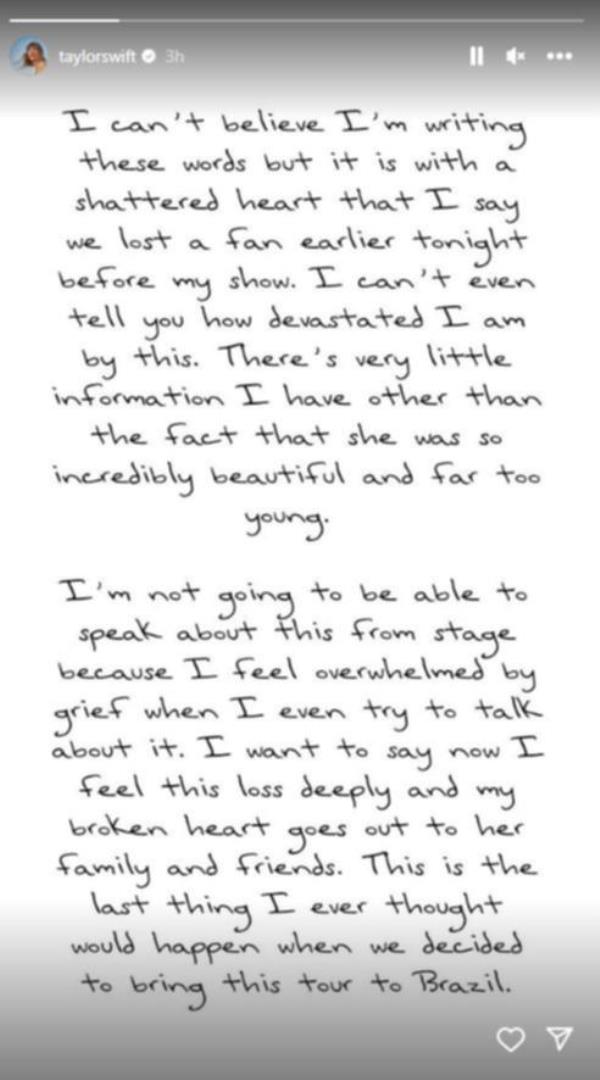 taylorswift 3h
I can't believe I'm writing
these words but it is with a
shattered heart that I say
we lost a fan earlier tonight
before my show. I can't even
tell you how devastated I am
by this. There's very little
information I have other than
the fact that she was so
incredibly beautiful and far too
young.
I'm not going to be able to
speak about this from stage
because I feel overwhelmed by
grief when I even try to talk
about it. I want to say now I
feel this loss deeply and my
broken heart goes out to her
family and friends. This is the
last thing I ever thought
would happen when we decided
to bring this tour to Brazil.